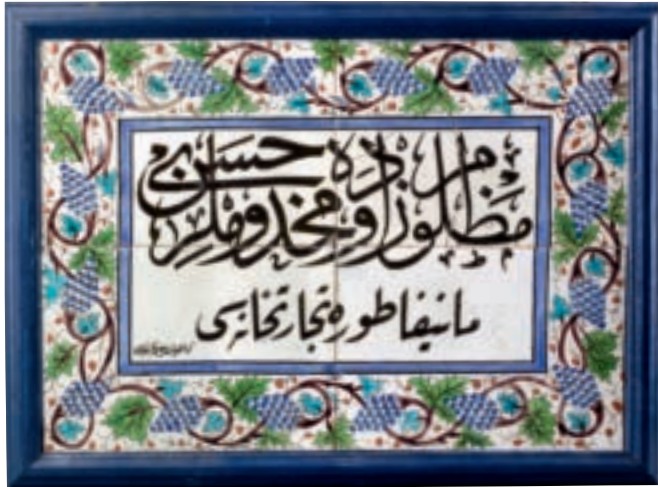 مظلوم زاده حسن بك و مخدوملری
مانيفاطوره تجارتخانه‌سی